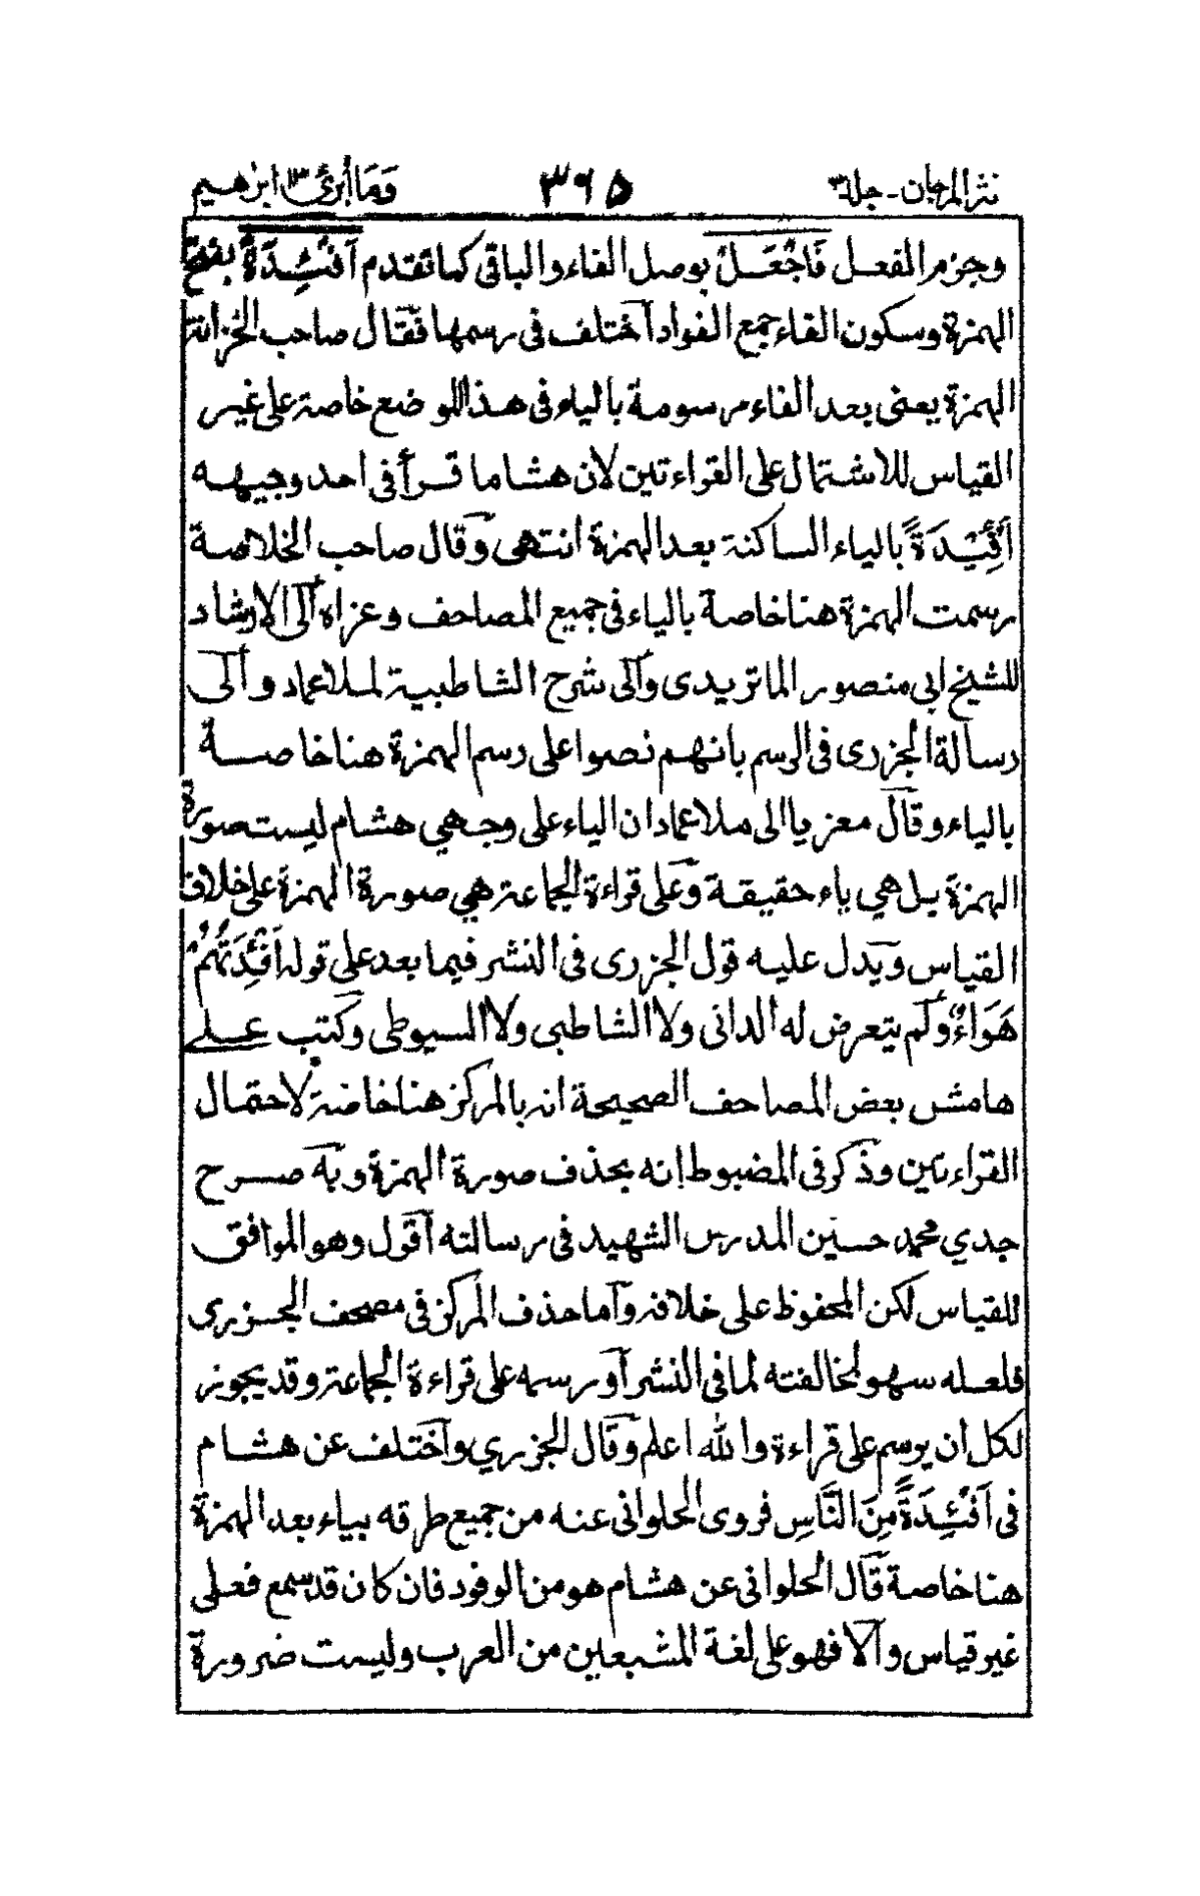 نثر المرجان - جلد ٣
٣٦٥
وَمَا أُبَرِّئُ ١٣ ابرٰهيم
وجزم الفعل فَاجْعَلْ بوصل الفاء والباقى كما تقدم اَفْئِدَةً بفتح
الهمزة وسكون الفاء جمع الفواد اختلف فى رسمها فقال صاحب الخزانة
الهمزة يعنى بعد الفاء مرسومة بالياء فى هذا الموضع خاصة على غير
القياس للاشتمال على القراءتين لان هشاما قرأ فى احد وجيهه
أَفْئِيْدَةً بالياء الساكنة بعد الهمزة انتهى وقال صاحب الخلاصة
رسمت الهمزة هنا خاصة بالياء فى جميع المصاحف وعزاه الى الارشاد
للشيخ ابى منصور الماتريدى والى شرح الشاطبية لملا عماد والى
رسالة الجزرى فى الرسم بانهم نصوا على رسم الهمزة هنا خاصة
بالياء وقال معزيا الى ملا عماد ان الياء على وجهي هشام ليست صورة
الهمزة بل هي ياء حقيقة وعلى قراءة الجماعة هي صورة الهمزة على خلاف
القياس ويدل عليه قول الجزرى فى النشر فيما بعد على قوله اَفْئِدَتُهُمْ
هَوَاءٌ ولم يتعرض له الدانى ولا الشاطبى ولا السيوطى وكتب على
هامش بعض المصاحف الصحيحة انه بالمركز هنا خاصة لاحتمال
القراءتين وذكر فى المضبوط انه بحذف صورة الهمزة وبه صرح
جدي محمد حسين المدرس الشهيد فى رسالته اقول وهو الموافق
للقياس لكن المحفوظ على خلافه واما حذف المركز فى مصحف الجزرى
فلعله سهو لمخالفته لما فى النشر او رسمه على قراءة الجماعة وقد يجوز
لكل ان يرسم على قراءة والله اعلم وقال الجزري واختلف عن هشام
فى اَفْئِدَةً مِّنَ النَّاسِ فروى الحلوانى عنه من جميع طرقه بياء بعد الهمزة
هنا خاصة قال الحلوانى عن هشام هو من الوفود فان كان قد سمع فعلى
غير قياس والا فهو على لغة المشبعين من العرب وليست ضرورة